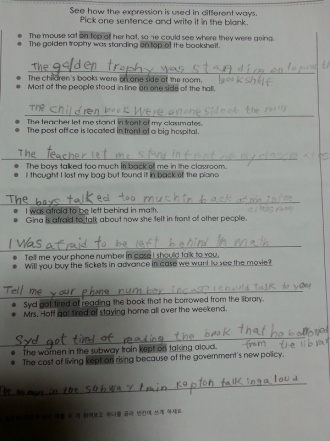 See how the expression is used in different ways.
Pick one sentence and write it in the blank.
The mouse sat on top of her hat, so he could see where they were going.
The golden trophy was standing on top of the bookshelf.
The golden trophy was standing on top of
bookshelf
The children's books were on one side of the room.
Most of the people stood in line on one side of the hall.
The children book were on one side of the room
The teacher let me stand in front of my classmates.
The post office is located in front of a big hospital.
The teacher let me in front of my
The boys talked too much in back of me in the classroom.
I thought I lost my bag but found it in back of the piano
The boys talked too much in back of
I was afraid to be left behind in math.
Gina is afraid to talk about how she felt in front of other people.
I Was afraid to be left behind In
Tell me your phone number in case I should talk to you.
Will you buy the tickets in advance in case we want to see the movie?
Tell me your phone number in case should talk to you
Syd got tired of reading the book that he borrowed from the library.
Mrs. Hoff got tired of staying home all over the weekend.
Syd got of reading the book that he
from the
The women in the subway train kept on talking aloud.
The cost of living kept on rising because of the government's new policy.
in the subway train kept on talking aloud